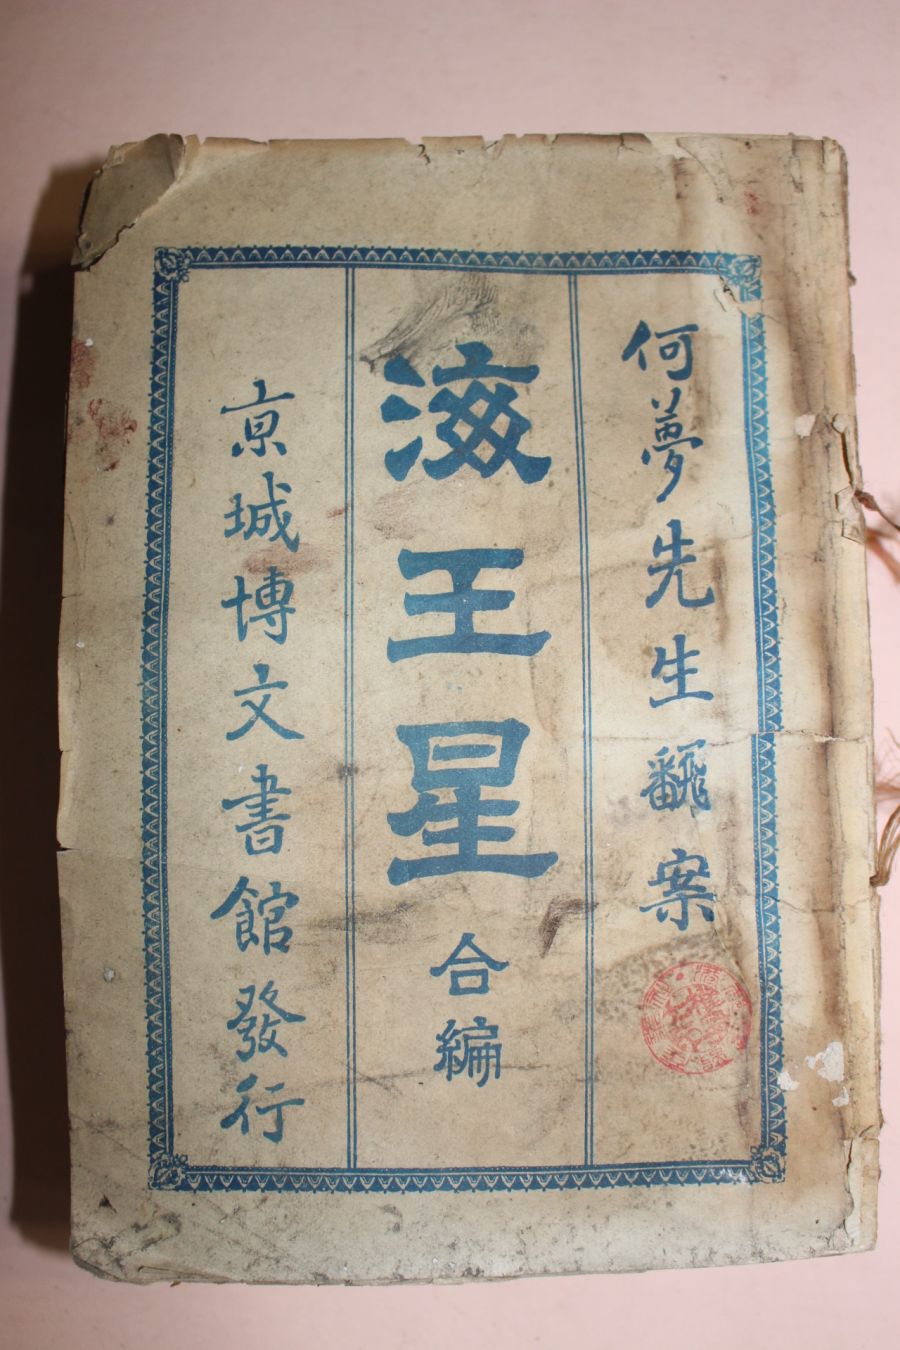 何夢先生飜案
海王星 合編
京城博文書館發行